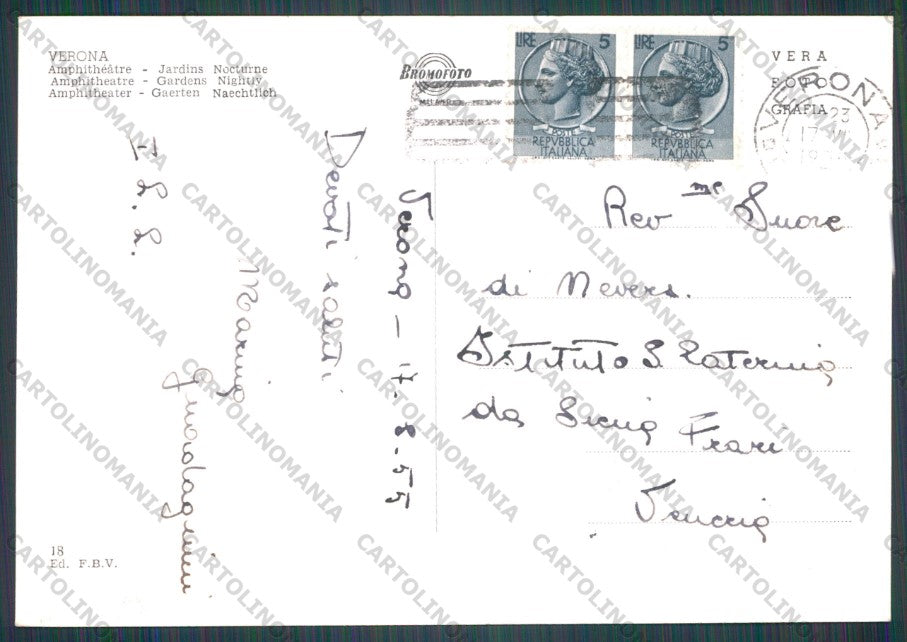 VERONA
Amphithéâtre - Jardins Nocturne
Amphitheatre - Gardens Nightly
Amphitheater - Gaerten Naechtlich
BROMOFOTO
LIRE 5
POSTE
REPVBBLICA
ITALIANA
LIRE 5
POSTE
REPVBBLICA
ITALIANA
VERA
FOTO
GRAFIA
VERONA
23
17
Verona - 17.8.55
Devoti saluti
Marino
Guadagnini
Rev me Suore
di Nevers.
Istituto S. Caterina
da Siena Frari
Venezia
18
Ed. F.B.V.
CARTOLINOMANIA